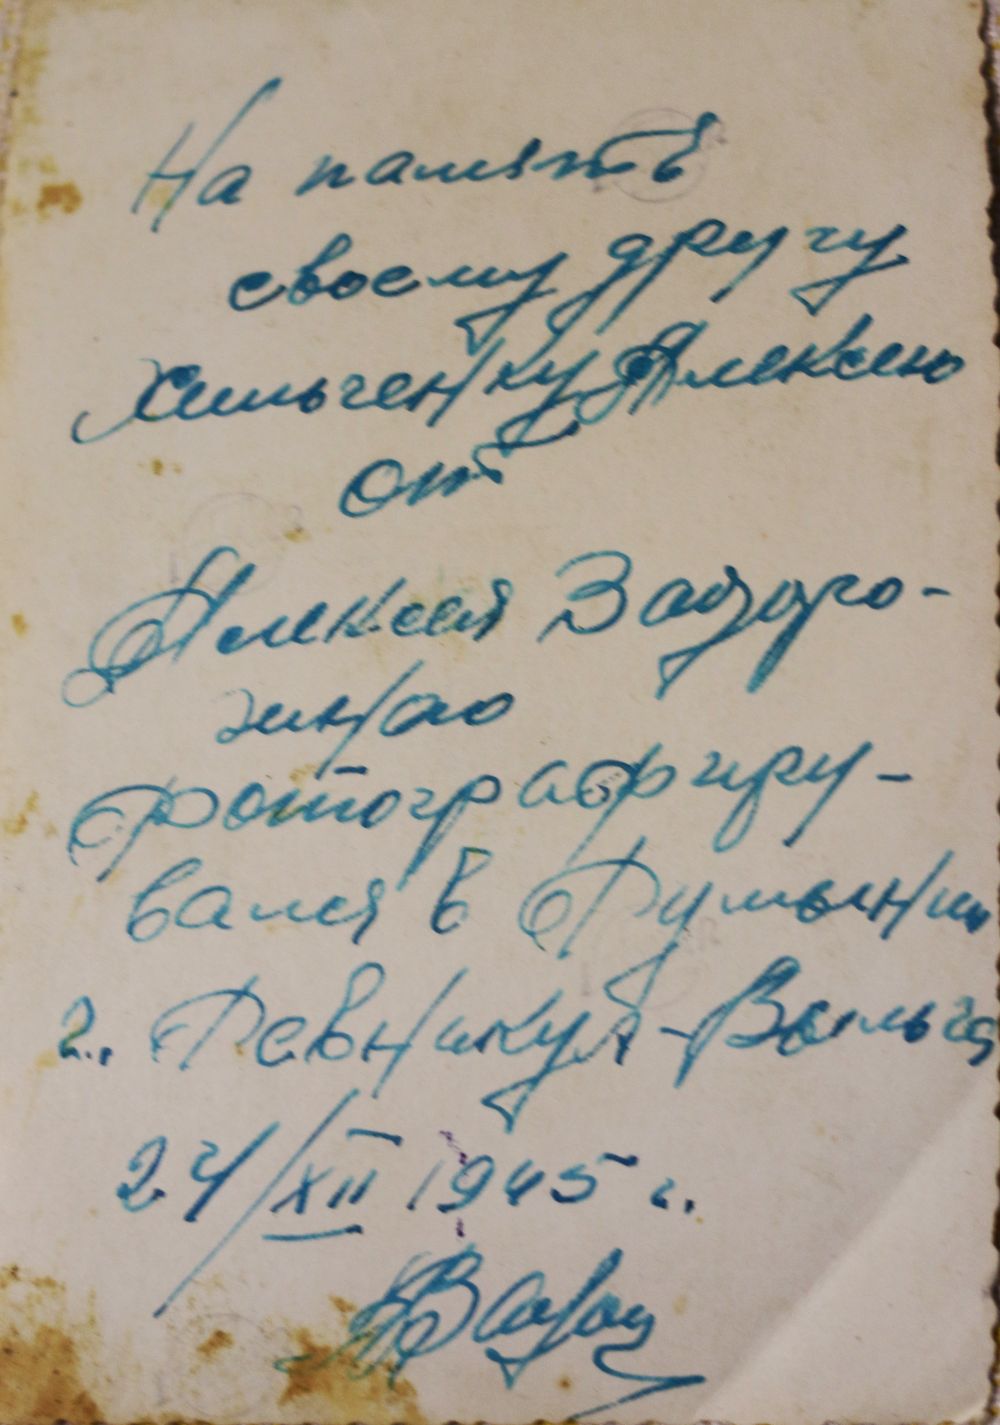 На память
своему другу
Хильченку Алексею
от
Алексея Задоро-
жнаго
Фотографиру-
вался в Румынии
г. Ревникул-Выльча
24/XII 1945 г.